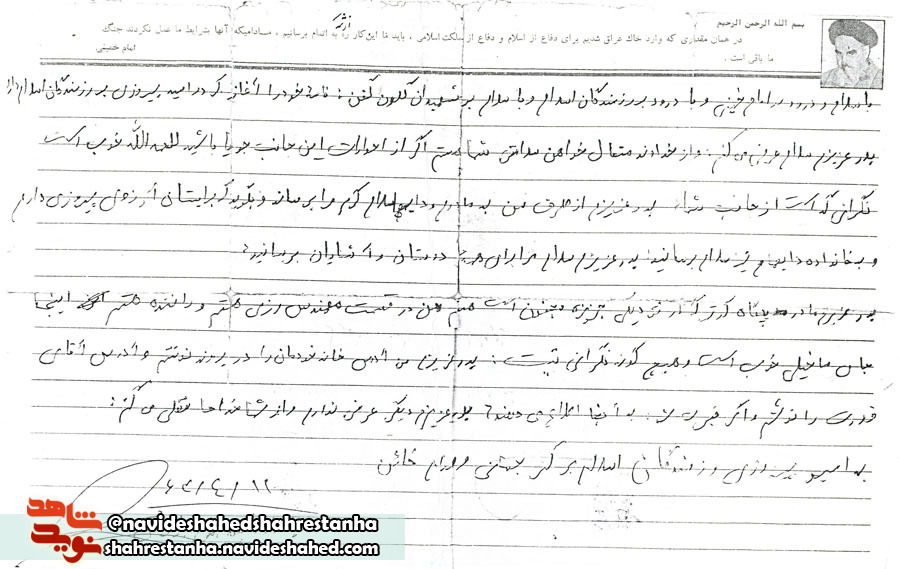 بسم الله الرحمن الرحیم
در همان مقداری که وارد خاك عراق شدیم برای دفاع از اسلام و دفاع از مملکت اسلامی ، باید ما این کار را به اتمام برسانیم ، مادامیکه آنها بشرایط ما عمل نکردند جنگ
ما باقی است .
امام خمینی
با سلام و درود بر امام خمینی و با درود بر رزمندگان اسلام و با سلام بر شهیدان گلگون کفن : نامه خود را آغاز کرده امید پیروزی بر رزمندگان اسلام دارم
پدر عزیزم سلام عرض می کنم : و از خداوند متعال خواهان سلامتی شما هستم اگر از احوالات این جانب جویا باشید الحمدالله خوب است
نگرانی که است از جانب شما پدر عزیزم از طرف من به مادرم و دایی سلام گرم مرا برساند و بگوید که برایشان آرزوی پیروزی دارم
و به خانواده دایی سلام برسانید : پدر عزیزم سلام مرا برای دوستان و آشنایان برسانید :
پدر عزیزم ما در که در نزدیکی جزیره مجنون است هستم من در قسمت مهندس رزمی هستم و راننده هستم اینجا
جای ما خیلی خوب است و هیچ گونه نگرانی نیست : پدر عزیزم من آدرس خانه خودمان را در نوشتم و آدرس آقای
قدرت را نوشتم و اگر به آنجا اطلاع می دهند پدر عزیزم دیگر عرضی ندارم و از شما خداحافظی می کنم :
به امید پیروزی رزمندگان اسلام بر کفر جهانی و صدام خائن
۶۳/۴/۱۲
شاهد
نوید
@navideshahedshahrestanha
shahrestanha.navideshahed.com